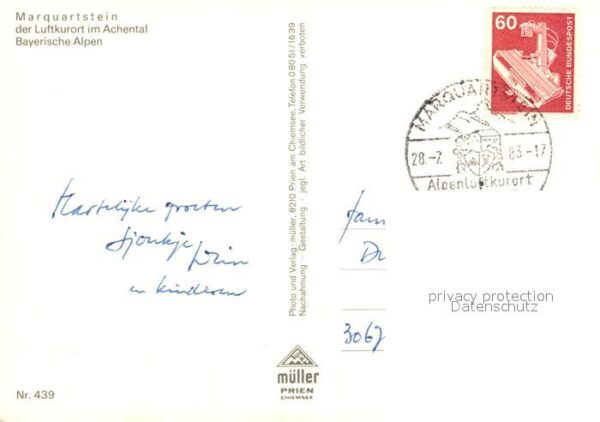 Marquartstein
der Luftkurort im Achental
Bayerische Alpen
60
DEUTSCHE BUNDESPOST
MARQUARTSTEIN
28.-7. 83.-17
Alpenluftkurort
Hartelijke groeten
Sjoukje
en kinderen
Fam
3067
privacy protection
Datenschutz
Photo und Verlag: müller, 8210 Prien am Chiemsee, Telefon 0 80 51/16 39
Nachahmung · Gestaltung · jegl. Art bildlicher Verwendung verboten
müller
PRIEN
CHIEMSEE
Nr. 439